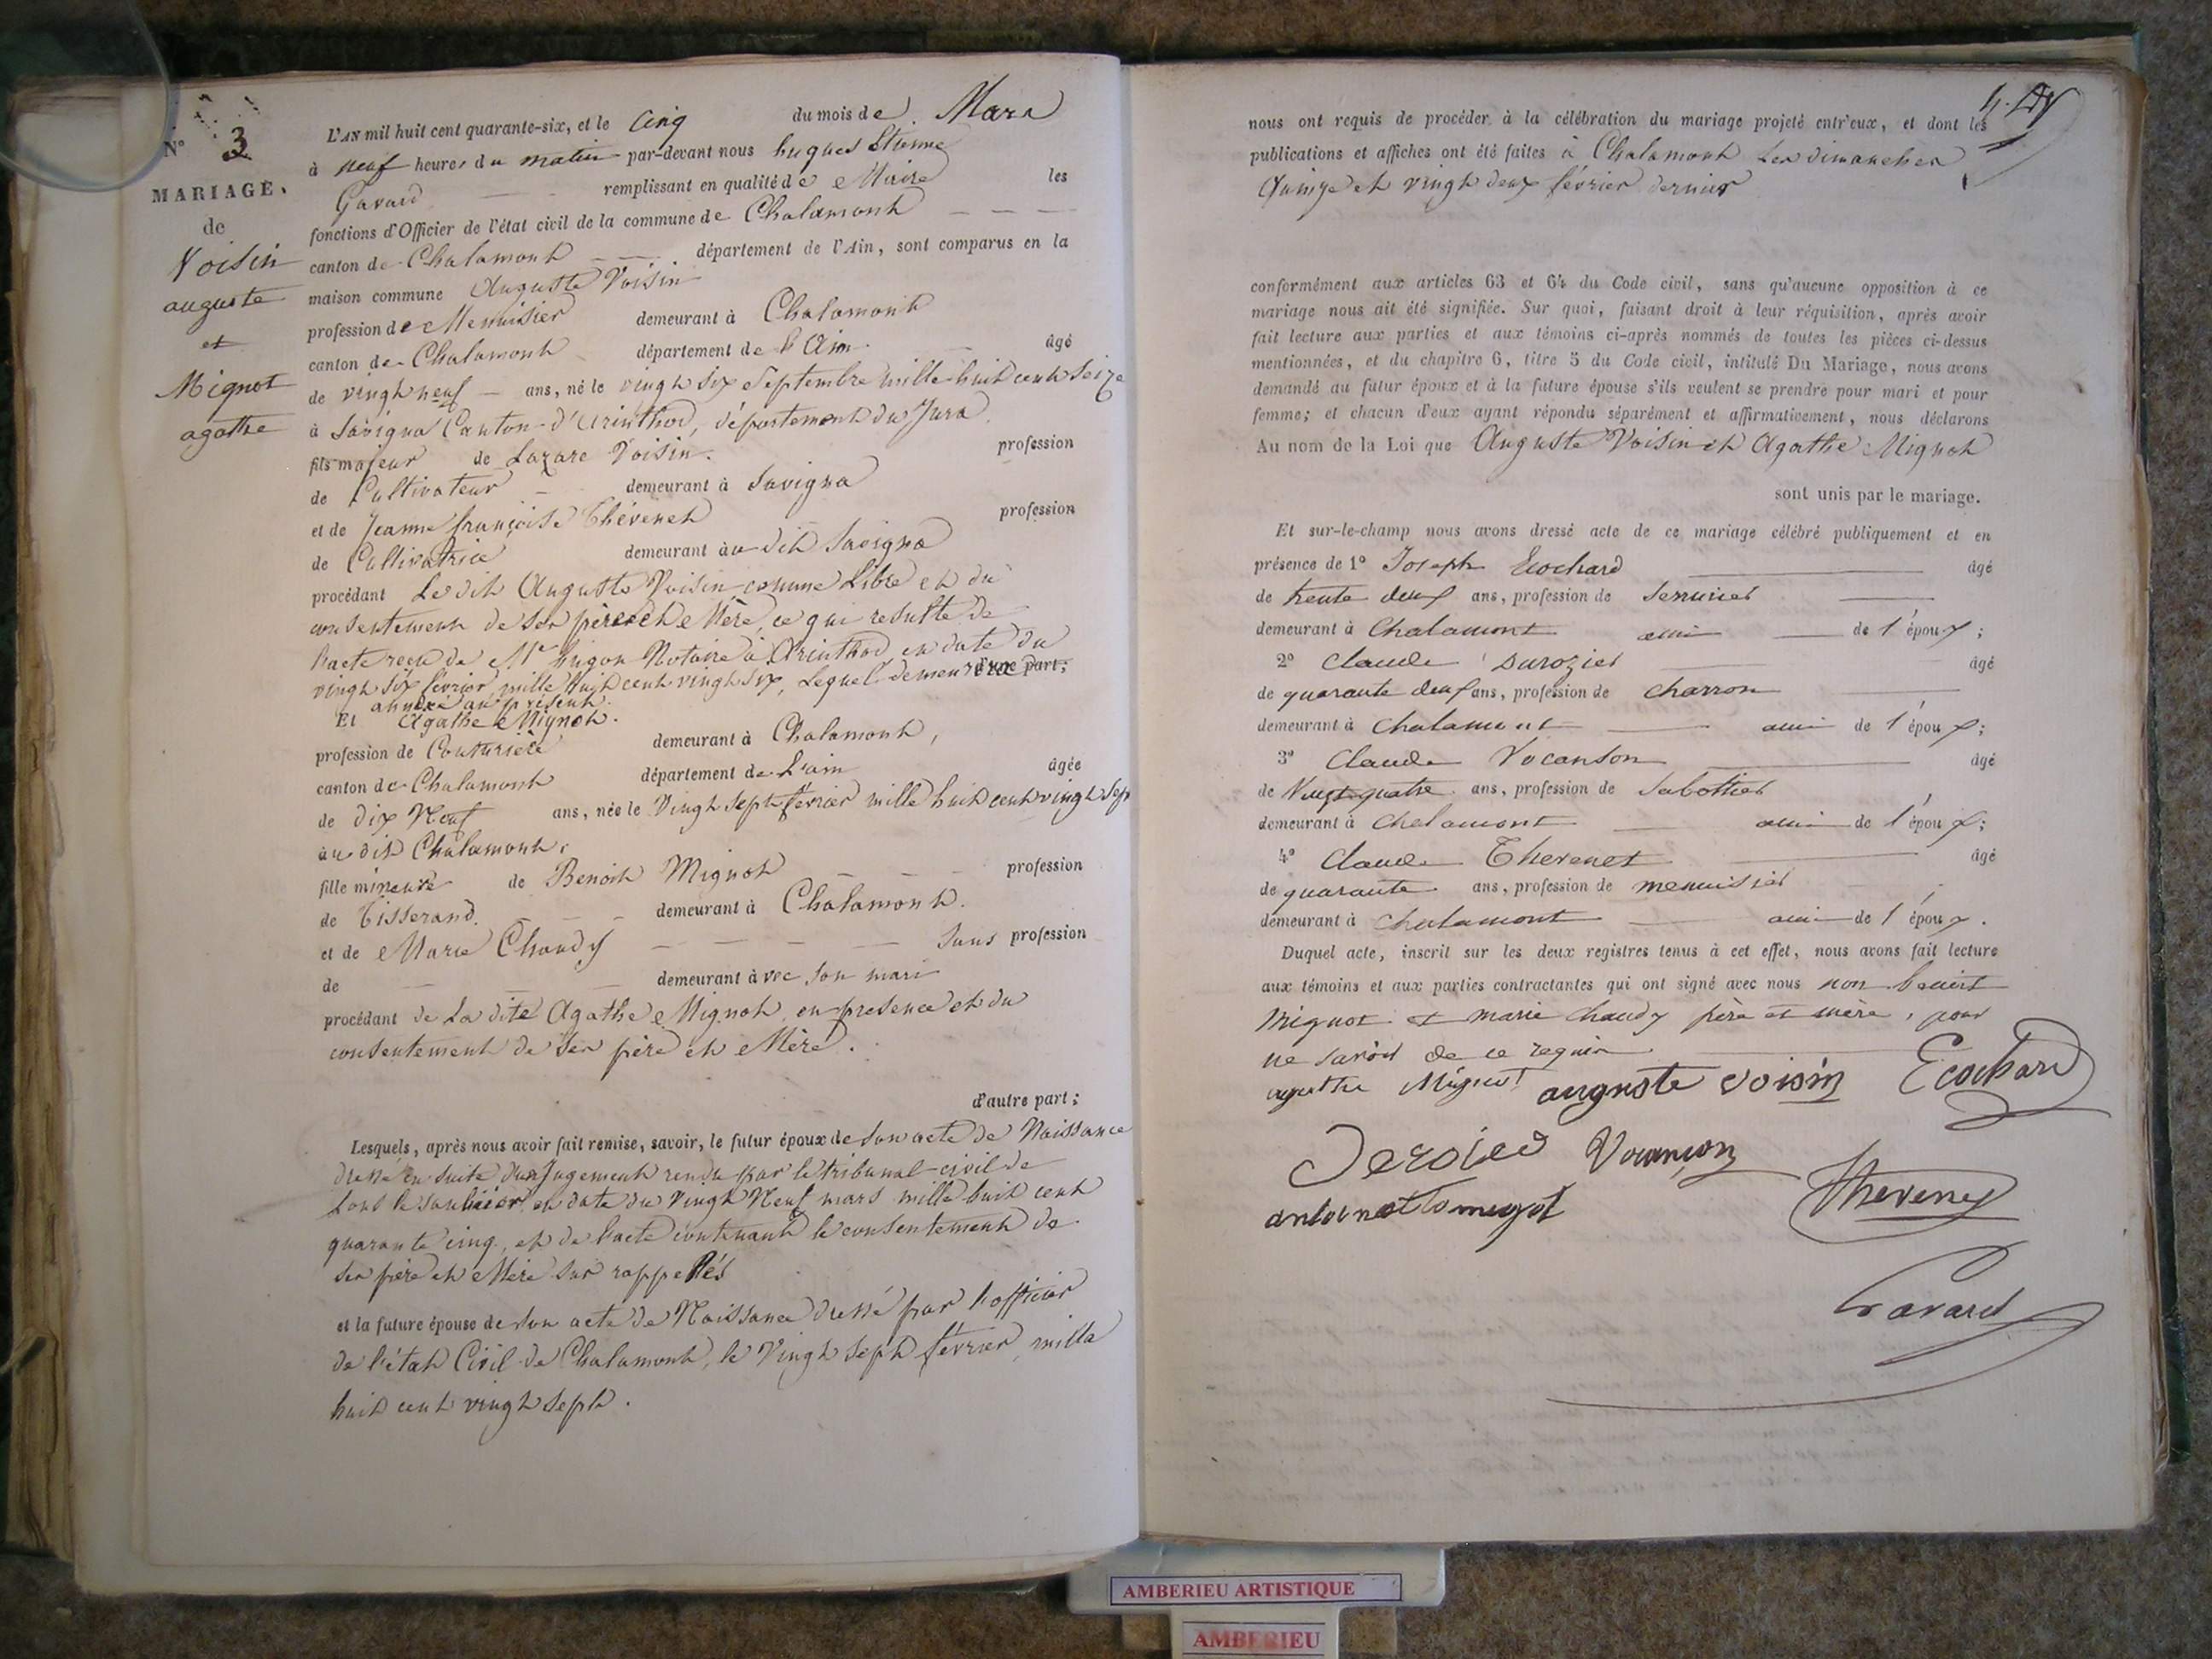 N° 3
MARIAGE.
de
Voisin
auguste
et
Mignot
agathe
L'AN mil huit cent quarante-six, et le cinq du mois de Mars
à neuf heures du matin par-devant nous hugues Etienne
Gavard remplissant en qualité de Maire les
fonctions d'Officier de l'état civil de la commune de Chalamont
canton de Chalamont département de l'Ain, sont comparus en la
maison commune Auguste Voisin
profession de Menuisier demeurant à Chalamont
canton de Chalamont département de l'Ain âgé
de vingt neuf ans, né le vingt six Septembre mille huit cent Seize
à Savigna Canton d'Arinthod, département du Jura
fils majeur de Lazare Voisin. profession
de Cultivateur demeurant à Savigna
et de Jeanne françoise Thévenet profession
de Cultivatrice demeurant au dit Savigna
procédant Le dit Auguste Voisin comme Libre et du
consentement de ses père et Mère, ce qui resulte de
l'acte reçu de Me Notaire à Arinthod en date du
vingt six février mille huit cent vingt six, Lequel demeurera d'une part;
annexé au présent.
Et Agathe Mignot.
profession de Couturière demeurant à Chalamont,
canton de Chalamont département de L'ain âgée
de dix Neuf ans, née le Vingt Sept février mille huit cent vingt Sep
au dit Chalamont.
fille mineure de Benoit Mignot profession
de Tisserand. demeurant à Chalamont.
et de Marie Chaudy Sans profession
de demeurant avec son mari
procédant de La dite Agathe Mignot, en presence et du
consentement de Ses père et Mère.
d'autre part;
Lesquels, après nous avoir fait remise, savoir, le futur époux de Son acte de Naissance
dressé en suite d'un Jugement rendu par le tribunal civil de
Lons le Saulnier en date du Vingt Neuf mars mille huit cent
quarante cinq, et de l'acte contenant le consentement de
Ses père et Mère sus rappellés
et la future épouse de Son acte de Naissance dressé par l'officier
de l'état Civil de Chalamont, le Vingt Sept février mille
huit cent vingt sept.
nous ont requis de procéder à la célébration du mariage projeté entr'eux, et dont les
publications et affiches ont été faites à Chalamont Les dimanches
Quinze et vingt deux février dernier
conformément aux articles 63 et 64 du Code civil, sans qu'aucune opposition à ce
mariage nous ait été signifiée. Sur quoi, faisant droit à leur réquisition, après avoir
fait lecture aux parties et aux témoins ci-après nommés de toutes les pièces ci-dessus
mentionnées, et du chapitre 6, titre 5 du Code civil, intitulé Du Mariage, nous avons
demandé au futur époux et à la future épouse s'ils veulent se prendre pour mari et pour
femme; et chacun d'eux ayant répondu séparément et affirmativement, nous déclarons
Au nom de la Loi que Auguste Voisin et Agathe Mignot
sont unis par le mariage.
Et sur-le-champ nous avons dressé acte de ce mariage célébré publiquement et en
présence de 1° Joseph Ecochard âgé
de trente deux ans, profession de Serrurier
demeurant à Chalamont ami de l'époux;
2° Claude Durozier âgé
de quarante deux ans, profession de charron
demeurant à Chalamont ami de l'époux;
3° Claude Vocanson âgé
de Vingt quatre ans, profession de Sabottier
demeurant à Chalamont ami de l'époux;
4° Claude Thevenet âgé
de quarante ans, profession de menuisier
demeurant à Chalamont ami de l'époux.
Duquel acte, inscrit sur les deux registres tenus à cet effet, nous avons fait lecture
aux témoins et aux parties contractantes qui ont signé avec nous non benoit
Mignot et marie Chaudy père et mère, pour
ne savoir de ce requis
agathe Mignot auguste voisin Ecochard
Vocanson
Thevenet
Gavard
AMBERIEU ARTISTIQUE
AMBERIEU